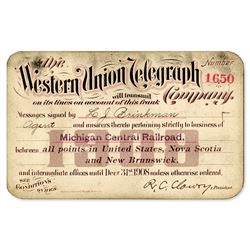 The
Number
Western Union Telegraph
1650
will transmit
Company.
on its lines on account of this frank
Messages signed by H J Brinkman
Agent and answers thereto pertaining strictly to business of
Michigan Central Railroad,
between all points in United States, Nova Scotia
and New Brunswick,
and intermediate offices until Decr 31st 1908 unless otherwise ordered.
SEE
CONDITIONS
OVER
R. C. Clowry,
President